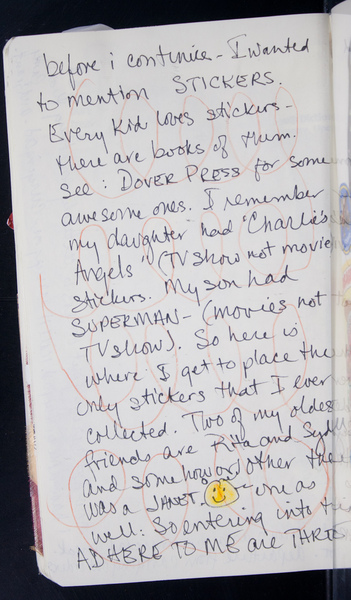 before i continue - I wanted
to mention STICKERS.
Every kid loves stickers -
there are books of them.
See: DOVER PRESS for some
awesome ones. I remember
my daughter had "Charlie's
Angels" (TV show not movie)
stickers. My son had
SUPERMAN - (movies not
TV show). So here is
where I get to place the
only stickers that I ever
collected. Two of my oldest
friends are Rita and
and somehow or other the
was a JANET - one as
well: So entering into
ADHERE TO ME are